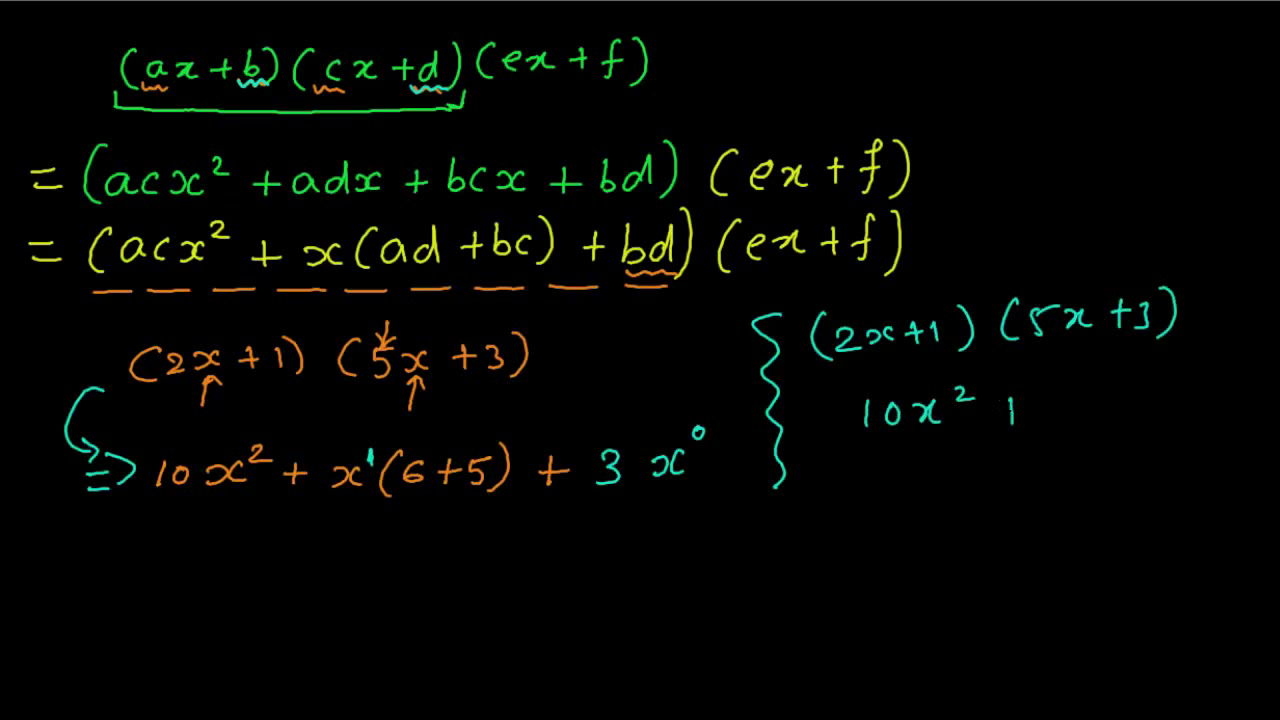 (ax+b)(cx+d)(ex+f)
= (acx² + adx + bcx + bd) (ex + f)
= (acx² + x(ad + bc) + bd) (ex + f)
(2x + 1) (5x + 3)
=> 10x² + x¹(6+5) + 3 x⁰
(2x+1) (5x+3)
10x²